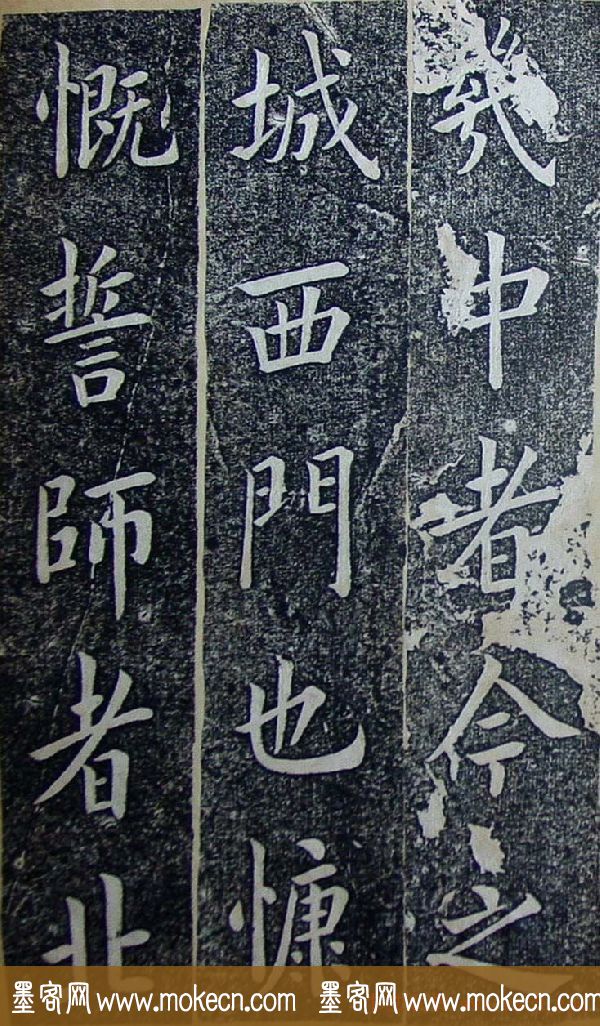 幾中者今之
城西門也慷
慨誓師者北
墨客网 www.mokecn.com 墨客网 www.mokecn.com